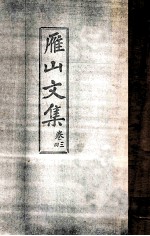 雁山文集
卷三四